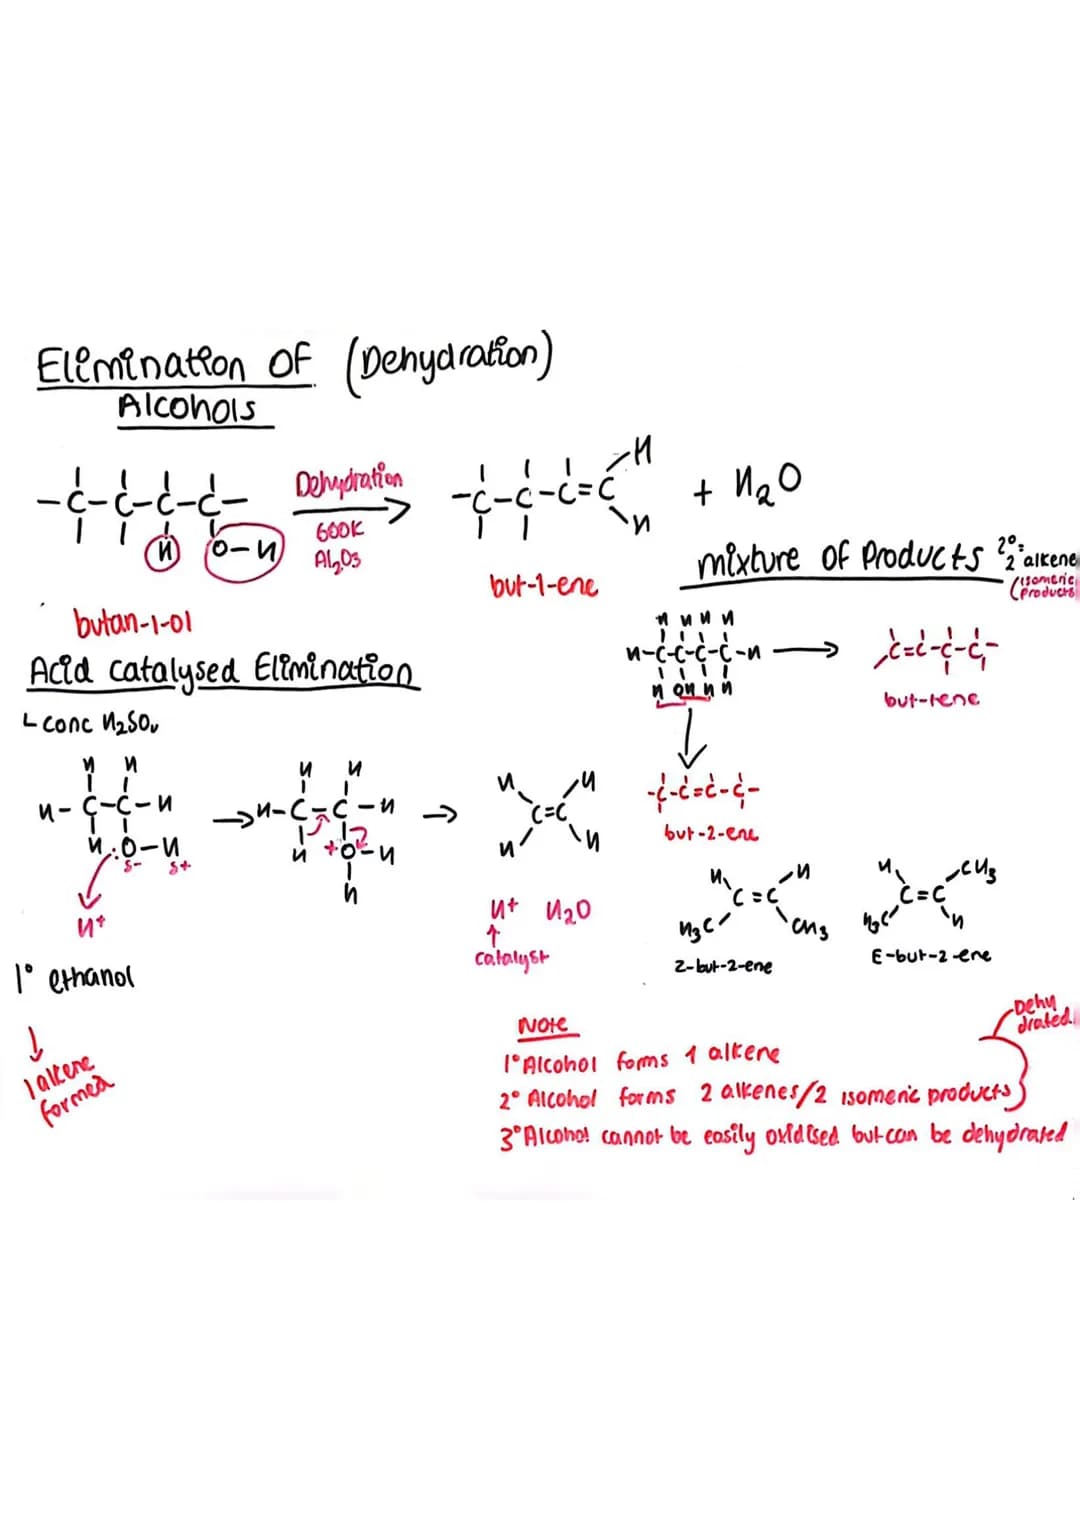 Elimination of (Dehydration)
Alcohols
-C-C-C-C-
H O-H
Dehydration
600K
Al2O3
-C-C-C=C
H
H
+ H2O
butan-1-ol
but-1-ene
mixture of Products 2°=
2 alkene
(isomeric
products
Acid catalysed Elimination
conc H2SO4
H H H H
H-C-C-C-C-H
H OH H H
C=C-C-C-
but-1ene
-C-C=C-C-
but-2-ene
H H
H-C-C-H
H :O-H
δ- δ+
H+
H H
H-C-C-H
H +O-H
H
H H
C=C
H H
H+ H2O
catalyst
H H
C=C
H3C CH3
Z-but-2-ene
H CH3
C=C
H3C H
E-but-2-ene
1° ethanol
1 alkene
formed
Note
1° Alcohol forms 1 alkene
2° Alcohol forms 2 alkenes/2 isomeric products
3° Alcohol cannot be easily oxidised but can be dehydrated
Dehy
drated.